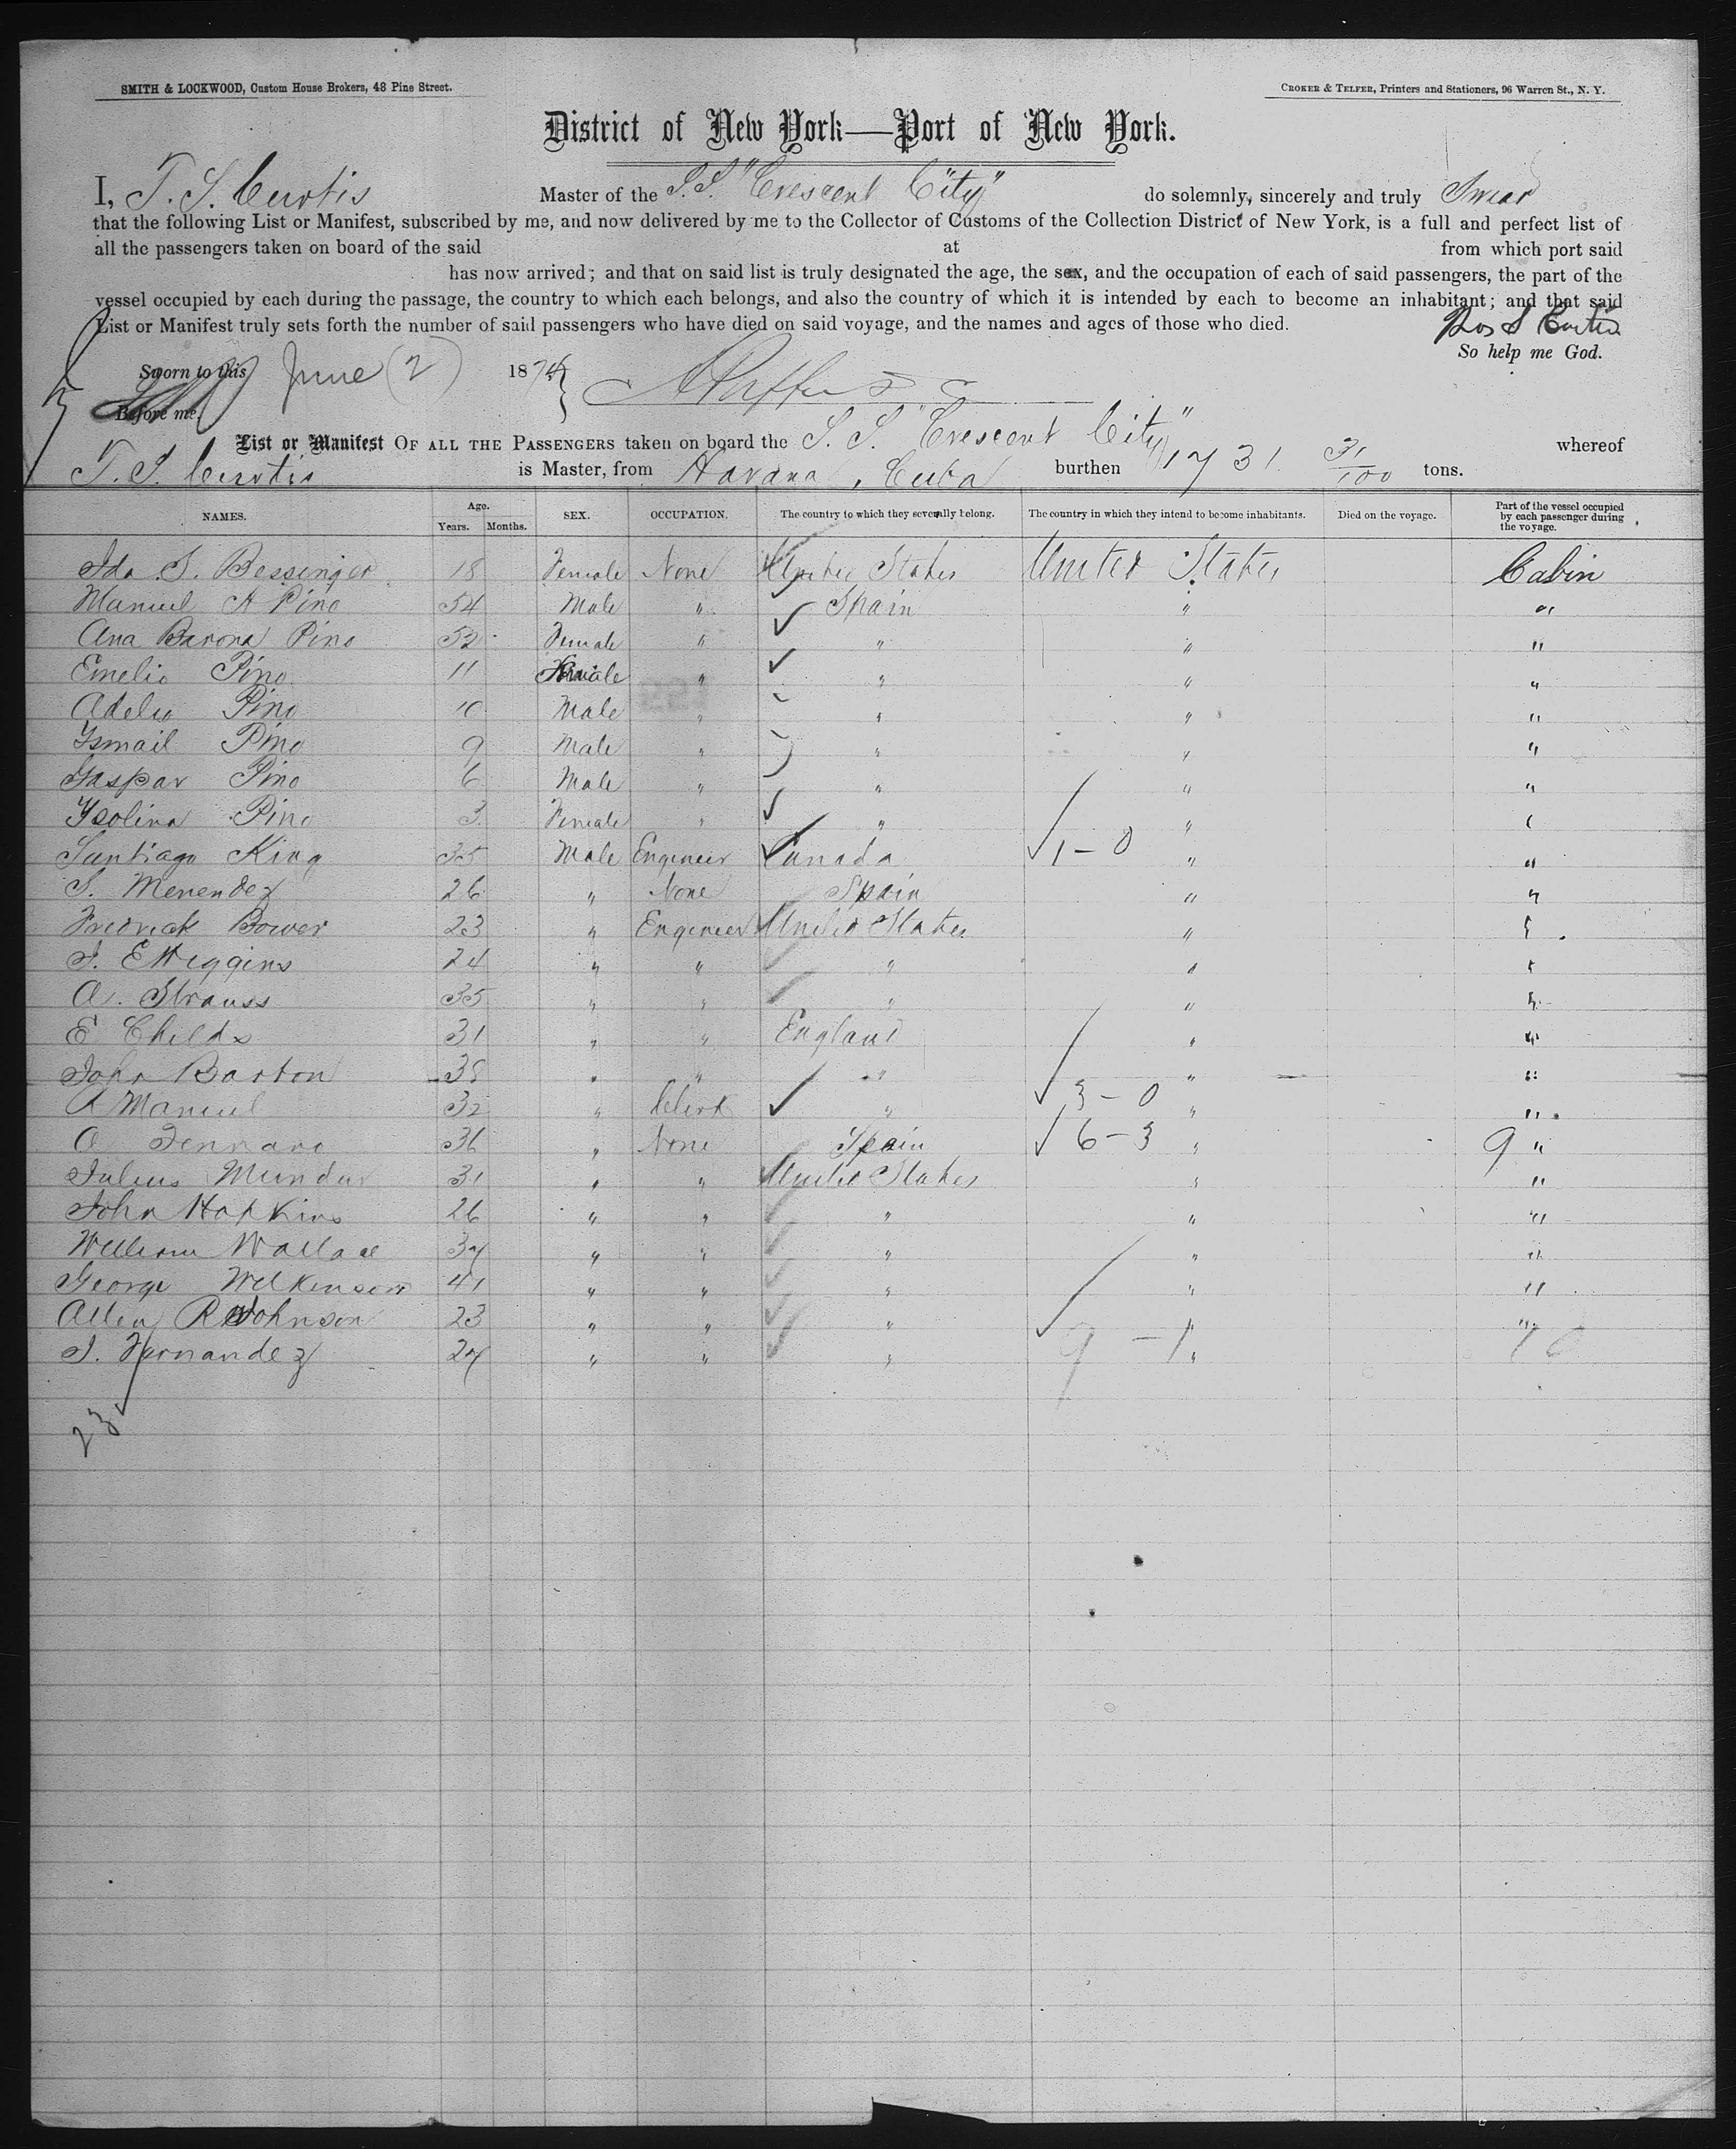 SMITH & LOCKWOOD, Custom House Brokers, 48 Pine Street.
CROKER & TELFER, Printers and Stationers, 96 Warren St., N. Y.
District of New York—Port of New York.
I, T. S. Curtis Master of the S.S. "Crescent City" do solemnly, sincerely and truly Swear
that the following List or Manifest, subscribed by me, and now delivered by me to the Collector of Customs of the Collection District of New York, is a full and perfect list of
all the passengers taken on board of the said at from which port said
has now arrived; and that on said list is truly designated the age, the sex, and the occupation of each of said passengers, the part of the
vessel occupied by each during the passage, the country to which each belongs, and also the country of which it is intended by each to become an inhabitant; and that said
List or Manifest truly sets forth the number of said passengers who have died on said voyage, and the names and ages of those who died.
S Curtis
So help me God.
Sworn to this June (2) 187
Before me.
List or Manifest OF ALL THE PASSENGERS taken on board the S. S. "Crescent City" whereof
T. S. Curtis is Master, from Havana, Cuba burthen 1731 31/100 tons.
NAMES. Age. Years. Months. SEX. OCCUPATION. The country to which they severally belong. The country in which they intend to become inhabitants. Died on the voyage. Part of the vessel occupied by each passenger during the voyage.
Ida S. Bessinger 18 Female None United States United States Cabin
Manuel A Pino 54 Male " Spain " "
Ana Barona Pino 52 Female " " " "
Emelio Pino 11 " " " "
Adelio Pino 10 Male " " " "
Ysmail Pino 9 Male " " " "
Gaspar Pino 6 Male " " " "
Ysolina Pino 3 Female " " " "
Santiago King 35 Male Engineer Canada 1-0 " "
S. Menendez 26 " None Spain " "
Fredrick Bower 23 " Engineer United States " "
J. E Higgins 24 " " " " "
A. Strauss 35 " " " " "
E Childs 31 " " England " "
John Barton " " " " "
A Manuel 32 " Clerk " 3-0 " "
A 36 " None Spain 6-3 " 9 "
Julius 31 " " United States " "
John Hopkins 26 " " " " "
William Wallace 37 " " " " "
George Wilkinson 41 " " " " "
Allen Johnson 23 " " " " "
J. Fernandez 27 " " " 9-1 "
23